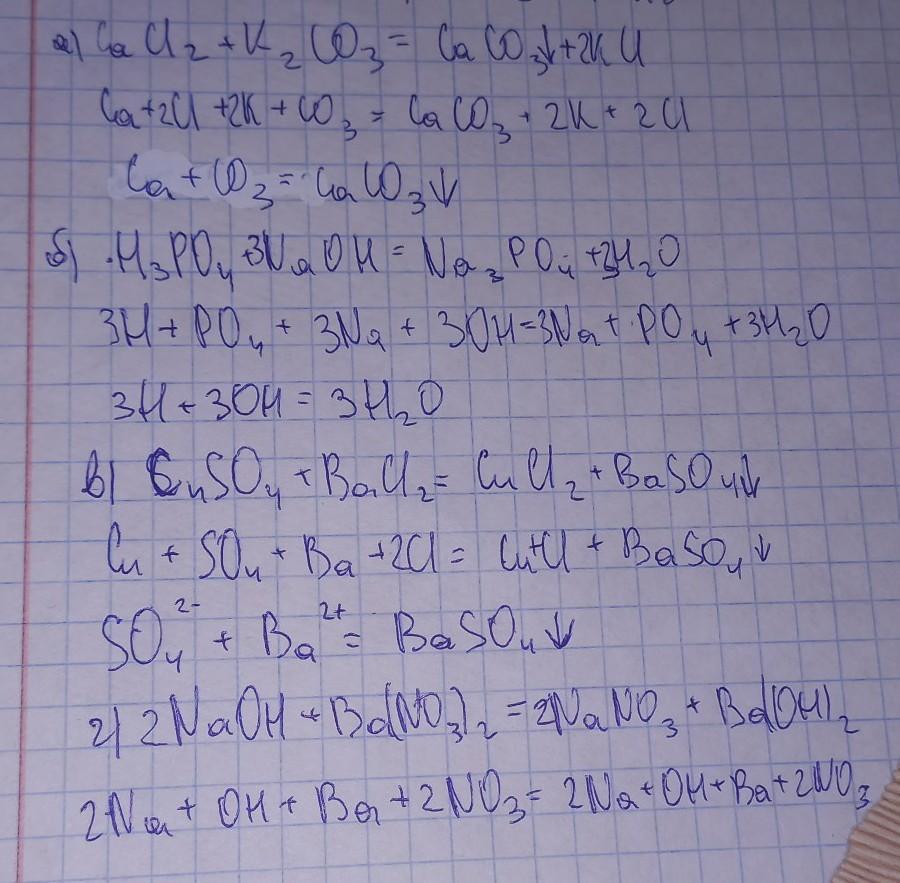 а) CaCl₂ + K₂CO₃ = CaCO₃↓ + 2KCl
Ca + 2Cl + 2K + CO₃ = CaCO₃ + 2K + 2Cl
Ca + CO₃ = CaCO₃↓
б) H₃PO₄ + 3NaOH = Na₃PO₄ + 3H₂O
3H + PO₄ + 3Na + 3OH = 3Na + PO₄ + 3H₂O
3H + 3OH = 3H₂O
в) CuSO₄ + BaCl₂ = CuCl₂ + BaSO₄↓
Cu + SO₄ + Ba + 2Cl = Cu + Cl + BaSO₄↓
SO₄²⁻ + Ba²⁺ = BaSO₄↓
г) 2NaOH + Ba(NO₃)₂ = 2NaNO₃ + Ba(OH)₂
2Na + OH + Ba + 2NO₃ = 2Na + OH + Ba + 2NO₃